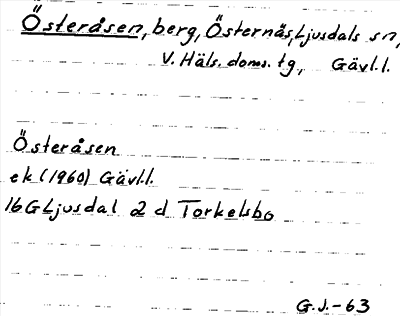 Österåsen, berg, Östernäs, Ljusdals sn,
V. Häls. doms. tg, Gävl.l.
Österåsen
ek (1960) Gävl.l.
16G Ljusdal 2 d Torkelsbo
G.J.-63